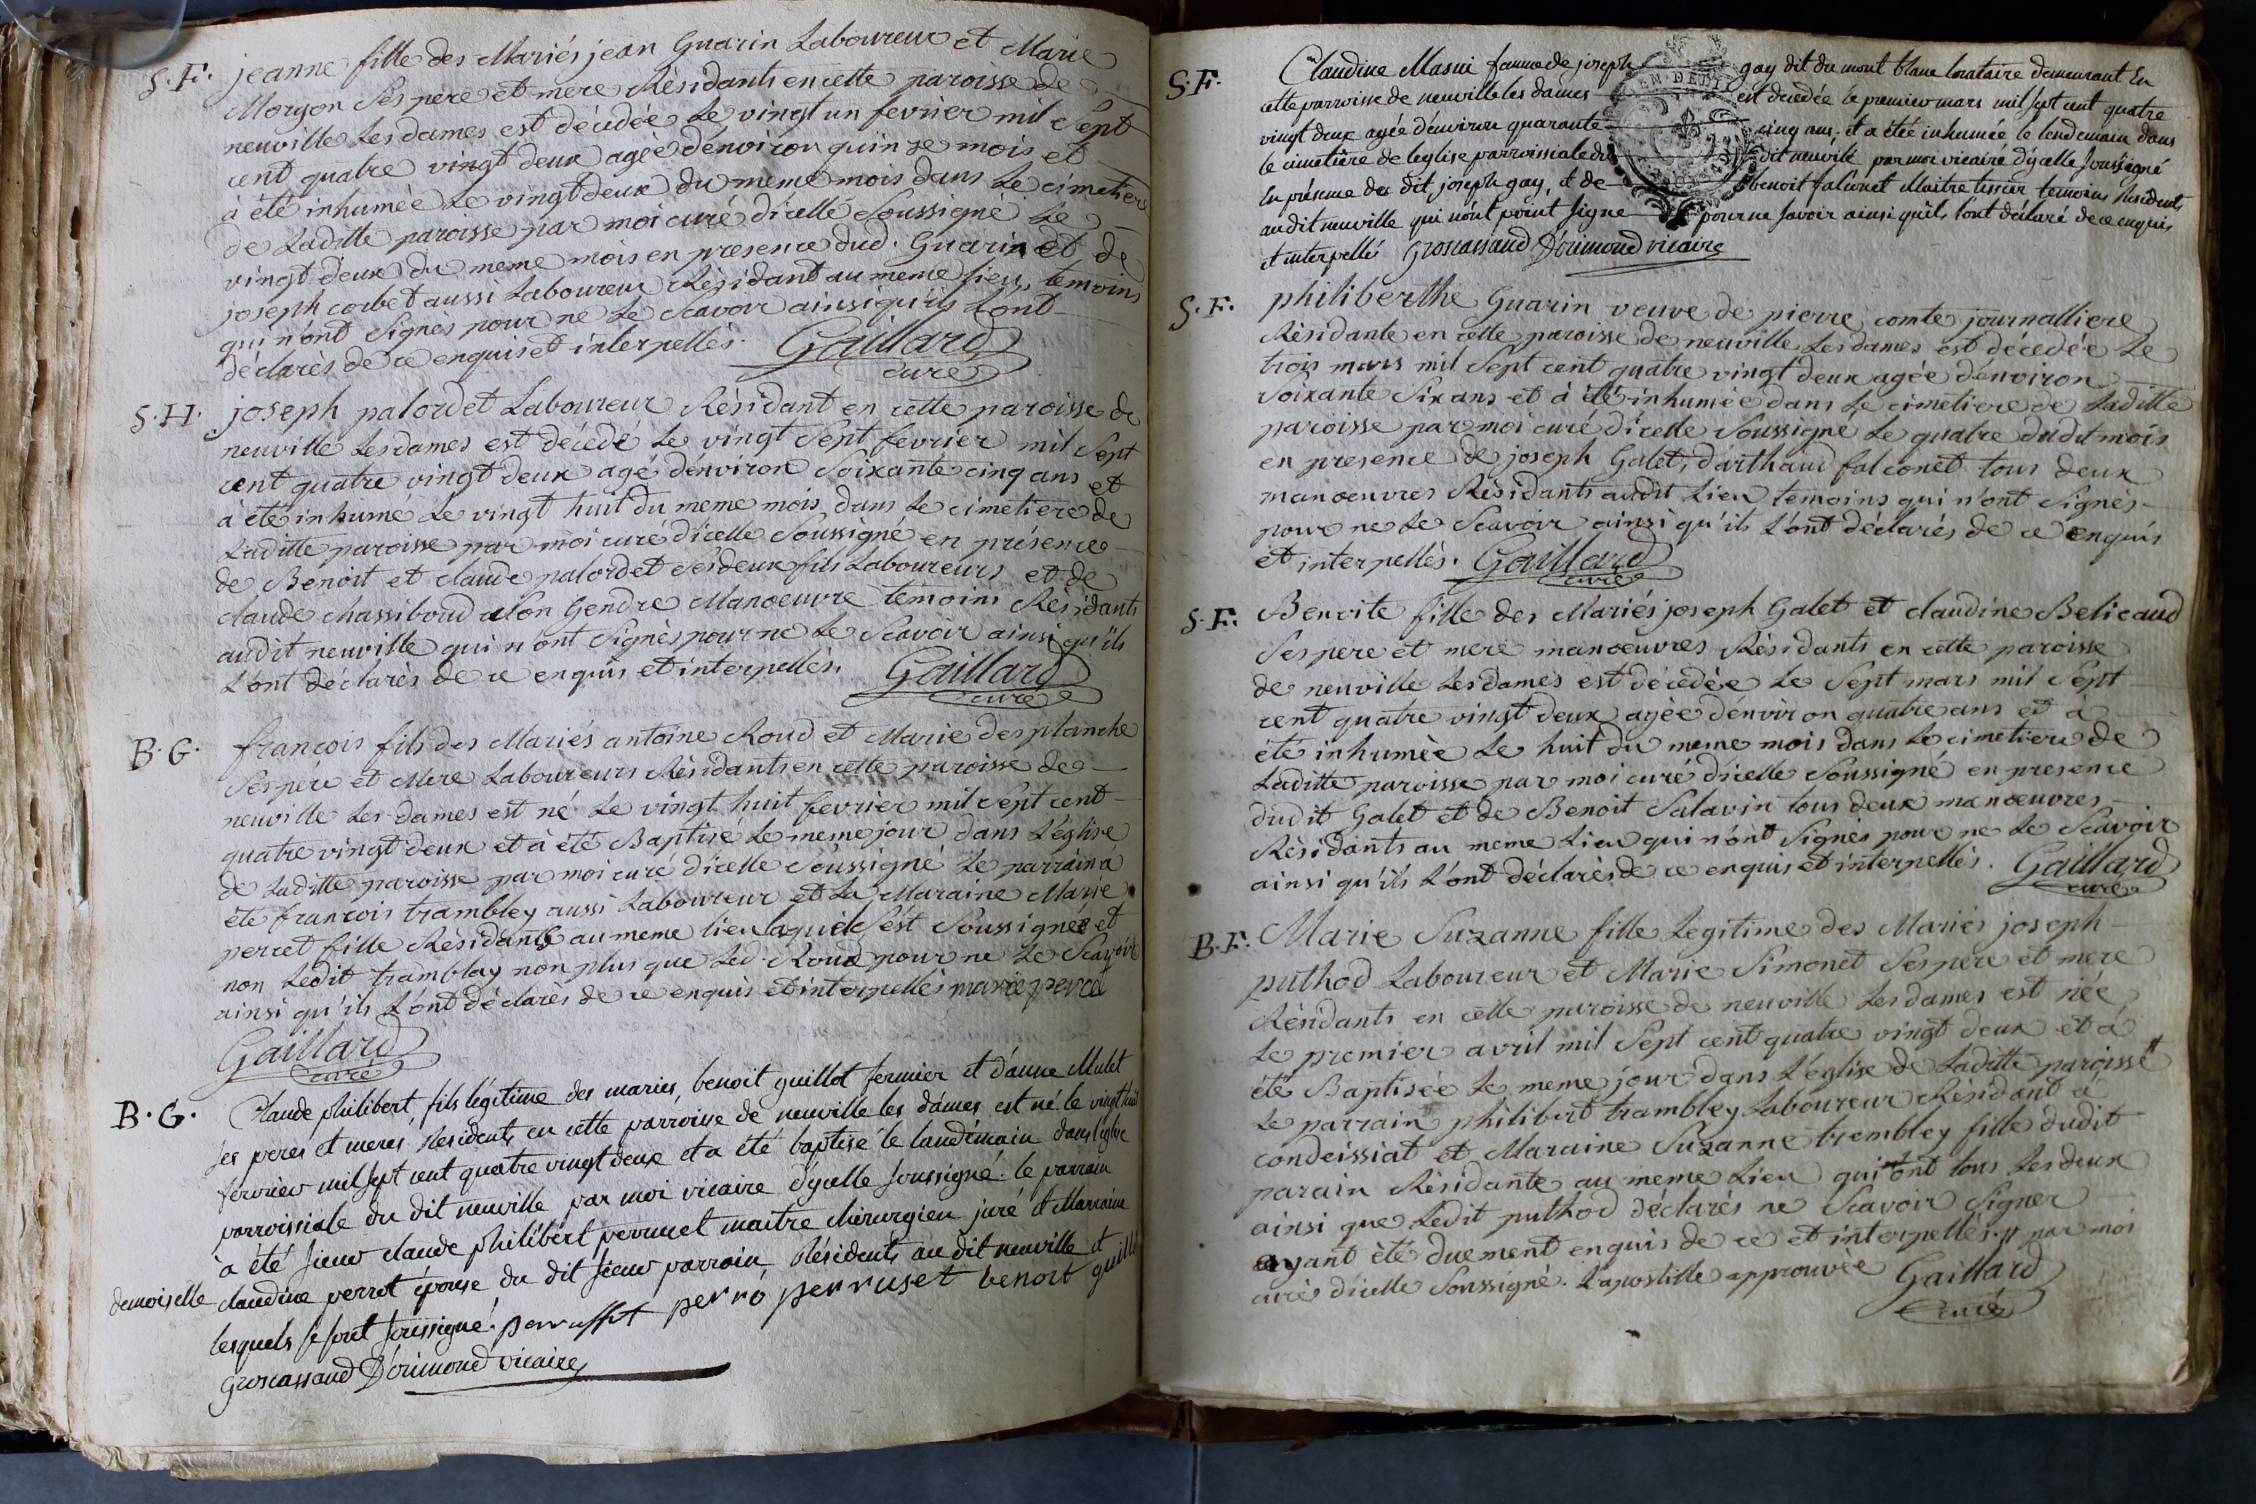 S. F. jeanne fille des Mariés jean Guarin Laboureur et Marie
Morgon Ses pere et mere Résidants en cette paroisse de
neuville Les dames est décédée Le vingt un fevrier mil Sept
cent quatre vingt deux agée d'énviron quinze mois et
à été inhumée Le vingt deux du meme mois dans Le cimetiere
de Laditte paroisse par moi curé d'icelle Soussigné Le
vingt deux du meme mois en presence dud. Guarin et de
joseph corbet aussi Laboureur Résidant au meme lieu, temoins
qui n'ont Signés pour ne Le Scavoir ainsi qu'ils L'ont
déclarés de ce enquis et interpellés. Gaillard
curé
S. H. joseph palordet Laboureur Résidant en cette paroisse de
neuville Les dames est décédé Le vingt Sept fevrier mil Sept
cent quatre vingt deux agé d'énviron Soixante cinq ans et
à été inhumé Le vingt huit du meme mois dans Le cimetiere de
Laditte paroisse par moi curé d'icelle Soussigné en présence
de Benoit et claude palordet Ses deux fils Laboureurs et de
claude chassiboud Son Gendre Manoeuvre temoins Résidants
audit neuville qui n'ont Signés pour ne Le Scavoir ainsi qu'ils
L'ont déclarés de ce enquis et interpellés. Gaillard
curé
B. G. françois fils des Mariés antoine Roud et Marie desplanche
Ses pére et Mere Laboureurs Résidants en cette paroisse de
neuville Les dames est né Le vingt huit fevrier mil Sept cent
quatre vingt deux et à été Baptisé Le meme jour dans L'église
de Laditte paroisse par moi curé d'icelle Soussigné Le parrain a
été françois trambley aussi Laboureur et La Maraine Marie
perret fille Résidante au meme lieu laquelle S'ést Soussignée et
non Ledit tramblay non plus que Led. Roud pour ne Le Scavoir
ainsi qu'ils L'ont déclarés de ce enquis et interpellés marie perret
Gaillard
curé
B. G. Claude philibert, fils légitime des mariés, benoit guillot fermier et d'anne Mulet
ses perés et merés Residents en cette parroisse de neuville les dámes est né le vingt huit
fevrier mil sept cent quatre vingt deux et a été baptisé le landémain dans l'église
parroissiale du dit neuville par moi vicaire d'ycelle soussigné. le parrain
à été sieur claude philibért perrucet maitre chirurgien juré et Marraine
demoiselle claudine perrot épouse du dit sieur parrain Résidents au dit neuville et
lesquels se sont soussigné. perrusset perró perruset benoit guillot
Groscassand D'orimond vicaire
S. F. Claudine Masni femme de joseph gay dit du mont blanc locataire demeurant En
cette parroisse de neuville les dámes est décédée le premier mars mil sept cent quatre
vingt deux agée d'environ quarante cinq ans. et a étée inhumée le lendemain dans
le cimetière de leglise parroissiale du dit neuville par moi vicairé d'ycelle soussigné
En présence du dit joseph gay, et de benoit falconet Maitre tissier temoins Residents
au dit neuville qui n'ónt point signe pour ne savoir ainsi qu'ils l'ont déclaré de ce enquis
et interpellés Groscassand D'orimond vicaire
S. F. philiberthe Guarin veuve de pierre comte journalliere
Résidante en cette paroisse de neuville Les dames est décedée Le
trois mars mil Sept cent quatre vingt deux agée d'énviron
Soixante Six ans et à été inhumée dans Le cimetiere de Laditte
paroisse par moi curé d'icelle Soussigné Le quatre dudit mois
en presence de joseph Galet, d'arthaud falconet tous deux
manoeuvres Résidants audit Lieu temoins qui n'ont Signés
pour ne Le Scavoir ainsi qu'ils L'ont déclarés de ce enquis
et interpellés. Gaillard
curé
S. F. Benoite fille des Mariés joseph Galet et claudine Belicaud
Ses pere et mere manoeuvres Résidants en cette paroisse
de neuville Les dames est décédée Le Sept mars mil Sept
cent quatre vingt deux agée d'énviron quatre ans et à
été inhumée Le huit du meme mois dans Le cimetiere de
Laditte paroisse par moi curé d'icelle Soussigné en presence
dudit Galet et de Benoit Salavin tous deux manoeuvres
Résidants au meme Lieu qui n'ont Signés pour ne Le Scavoir
ainsi qu'ils L'ont déclarés de ce enquis et interpellés. Gaillard
curé
B. F. Marie Suzanne fille Legitime des Mariés joseph
puthod Laboureur et Marie Simonet Ses pere et mere
Résidants en cette paroisse de neuville Les dames est née
Le premier avril mil Sept cent quatre vingt deux et à
été Baptisée Le meme jour dans L'église de Laditte paroisse #
Le parrain philibert trambley Laboureur Résidant à
condeissiat et Maraine Suzanne trembley fille dudit
parain Résidante au meme Lieu qui ont tous Les deux
ainsi que Ledit puthod déclarés ne Scavoir Signer
ayant été duement enquis de ce et interpellés. # par moi
curé d'icelle Soussigné. L'apostille approuvée Gaillard
curé